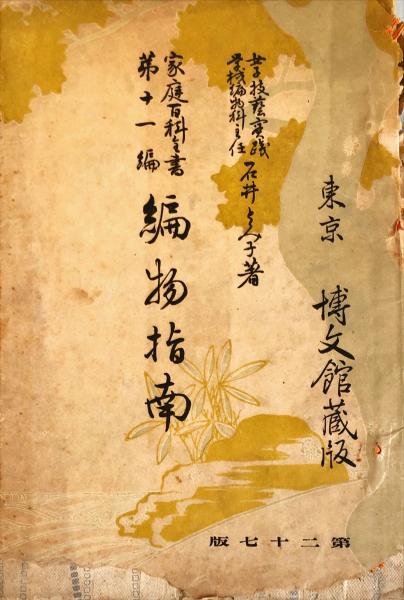 東京 博文館蔵版
女子技藝実践
学校編物科主任 石井とみ子著
家庭百科全書
第十一編
編物指南
第二十七版